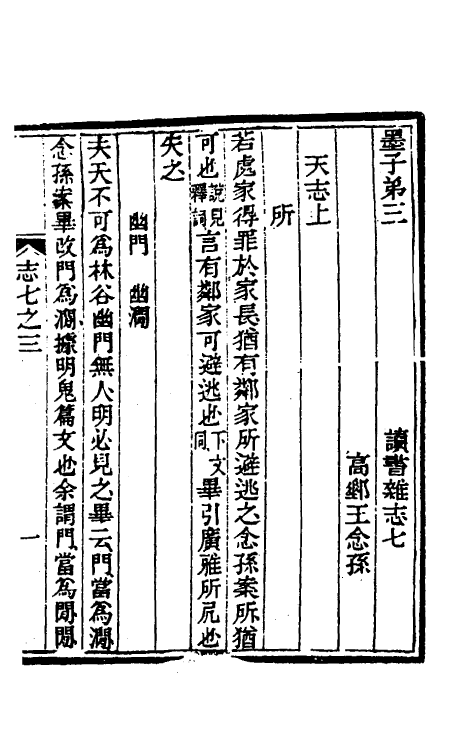 墨子弟三
讀書雜志七
高郵王念孫
天志上
所
若處家得罪於家長猶有鄰家所避逃之念孫案所猶
可也說見釋詞言有鄰家可避逃也下文同畢引廣雅所凥也
失之
幽門 幽澗
夫天不可爲林谷幽門無人明必見之畢云門當爲澗
念孫案畢改門爲澗據明鬼篇文也余謂門當爲閒閒
志七之三
一